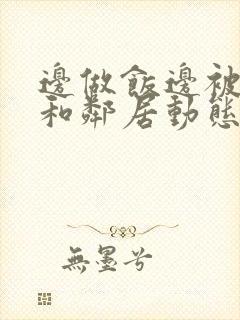 邊做飯邊被
和鄰居動態
無墨兮